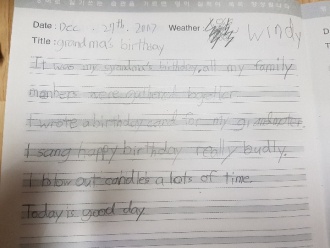 Date : Dec . 27th. 2017 Weather : windy
Title : grandma's birthday
It was my grandma's birthday, all my family
members were gathered together
I wrote a birthday card for my grandmother.
I sang happy birthday really budly.
I blow out candles a lots of time.
Today is good day